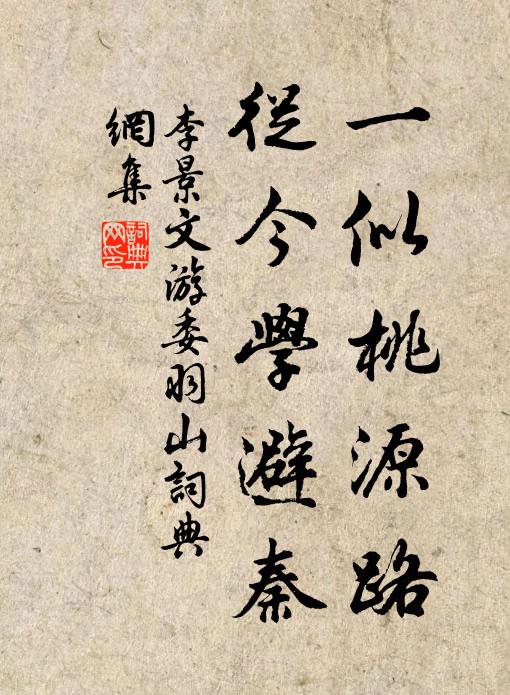 一似桃源路
從今學避秦
李景文游委羽山詞典
網集
詞典
网印